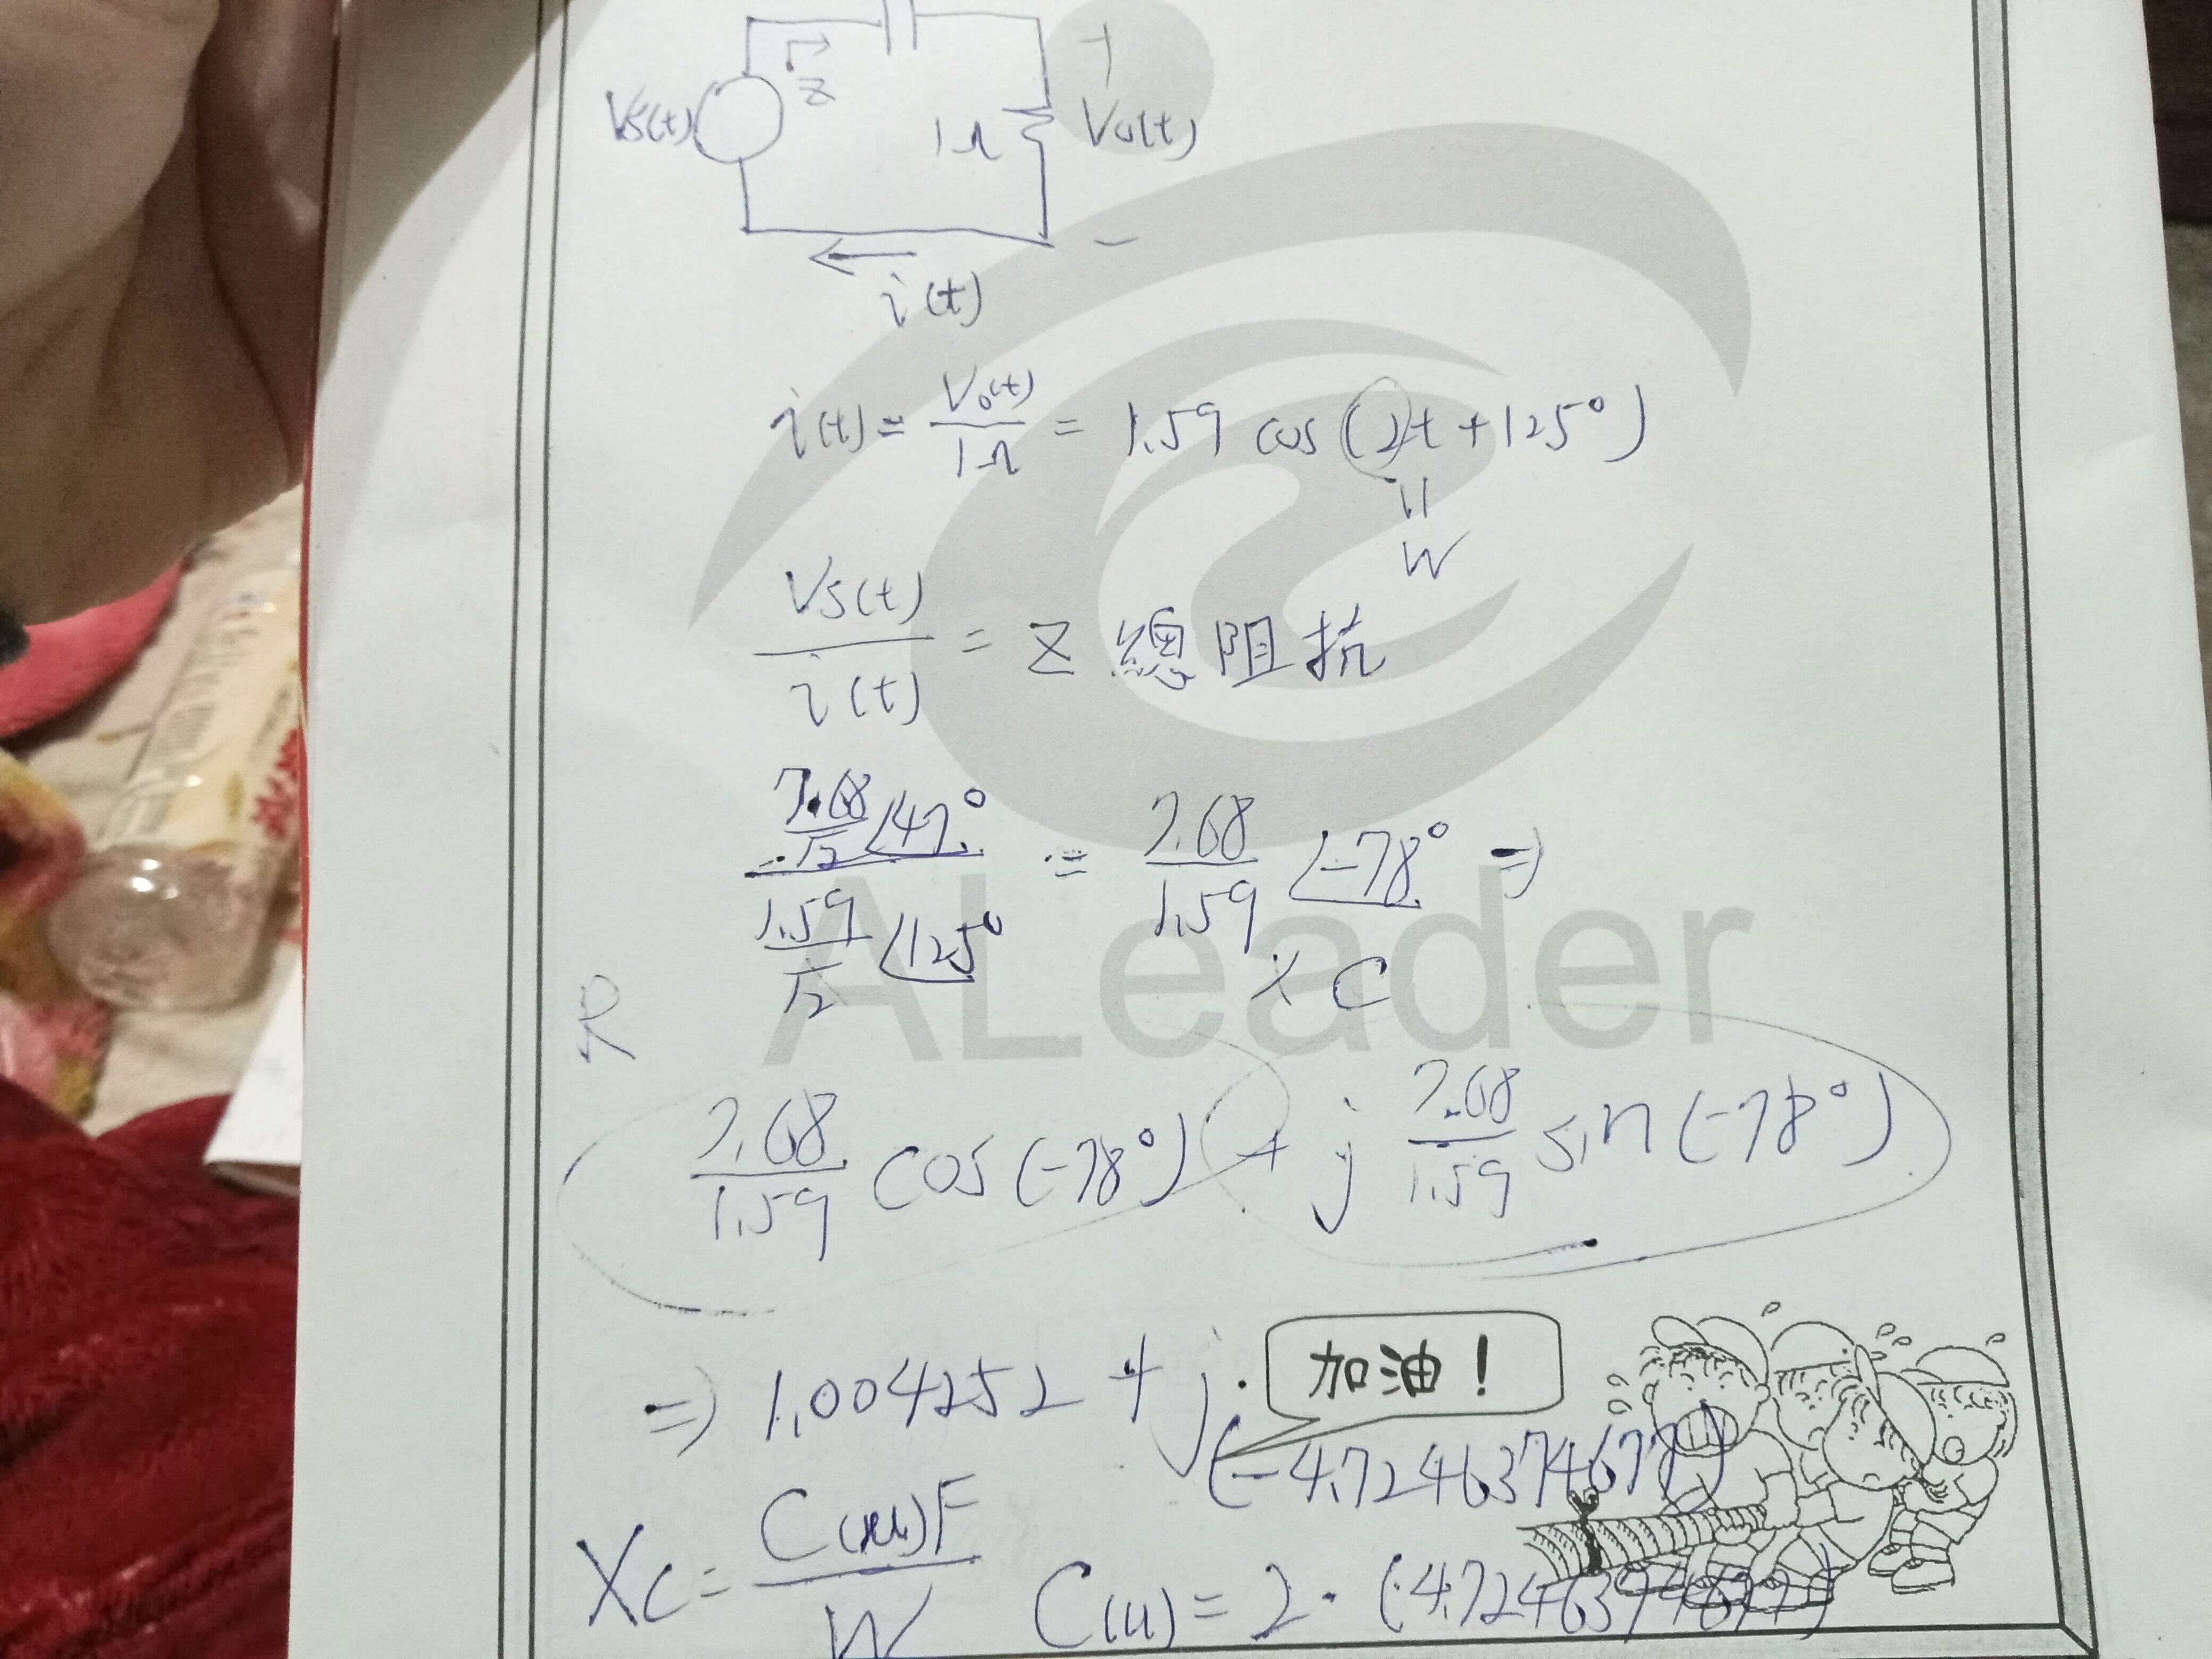 Vs(t) Z 1Ω + Vo(t) −
i(t)
i(t) = Vo(t) / 1Ω = 1.59 cos (2t + 125°)
W
Vs(t) / i(t) = Z 總阻抗
7.68/√2 ∠47° / 1.59/√2 ∠125° = 7.68/1.59 ∠-78° ⇒
ALeader
R XC
7.68/1.59 cos (-78°) + j 7.68/1.59 sin (-78°)
⇒ 1.004252 + j (-4.7246374677)
加油！
Xc = C(u)F / W C(u) = 2 · (-4.7246374677)